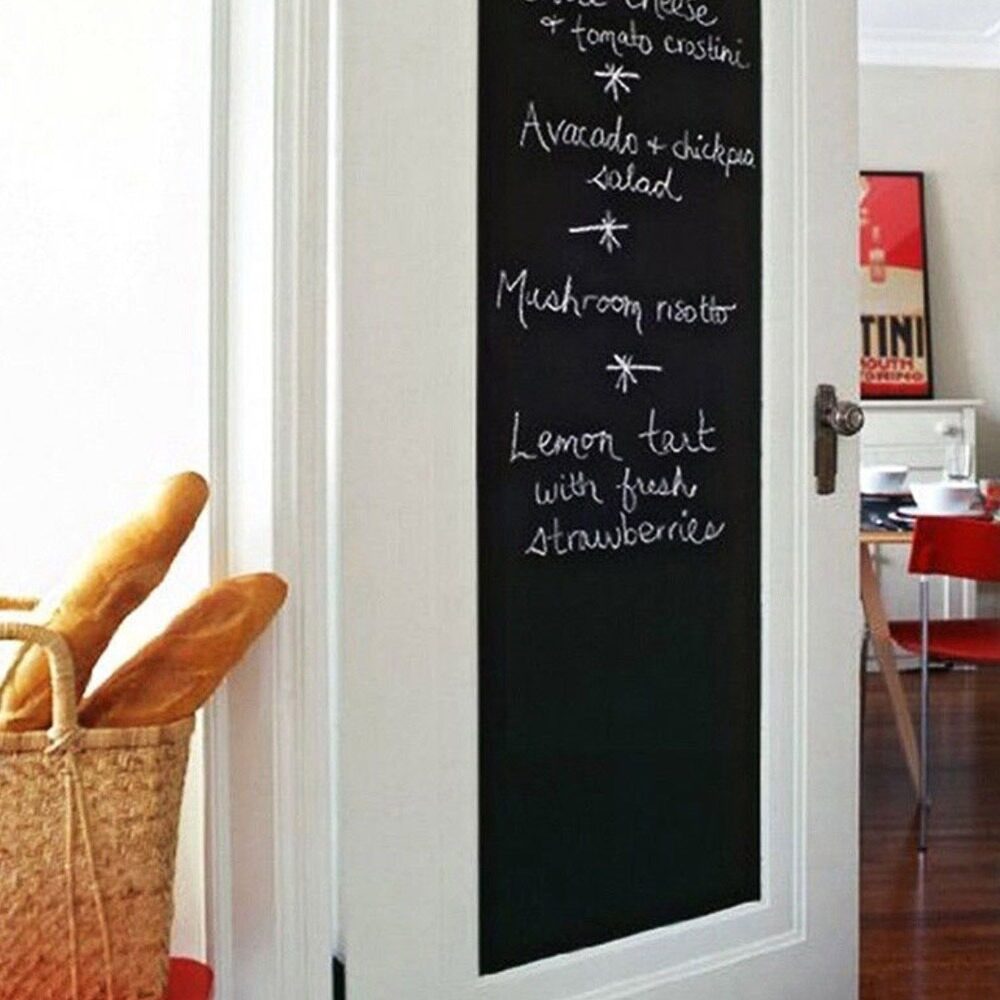 cheese
& tomato crostini
Avacado + chickpea
salad
Mushroom risotto
Lemon tart
with fresh
strawberries
TINI